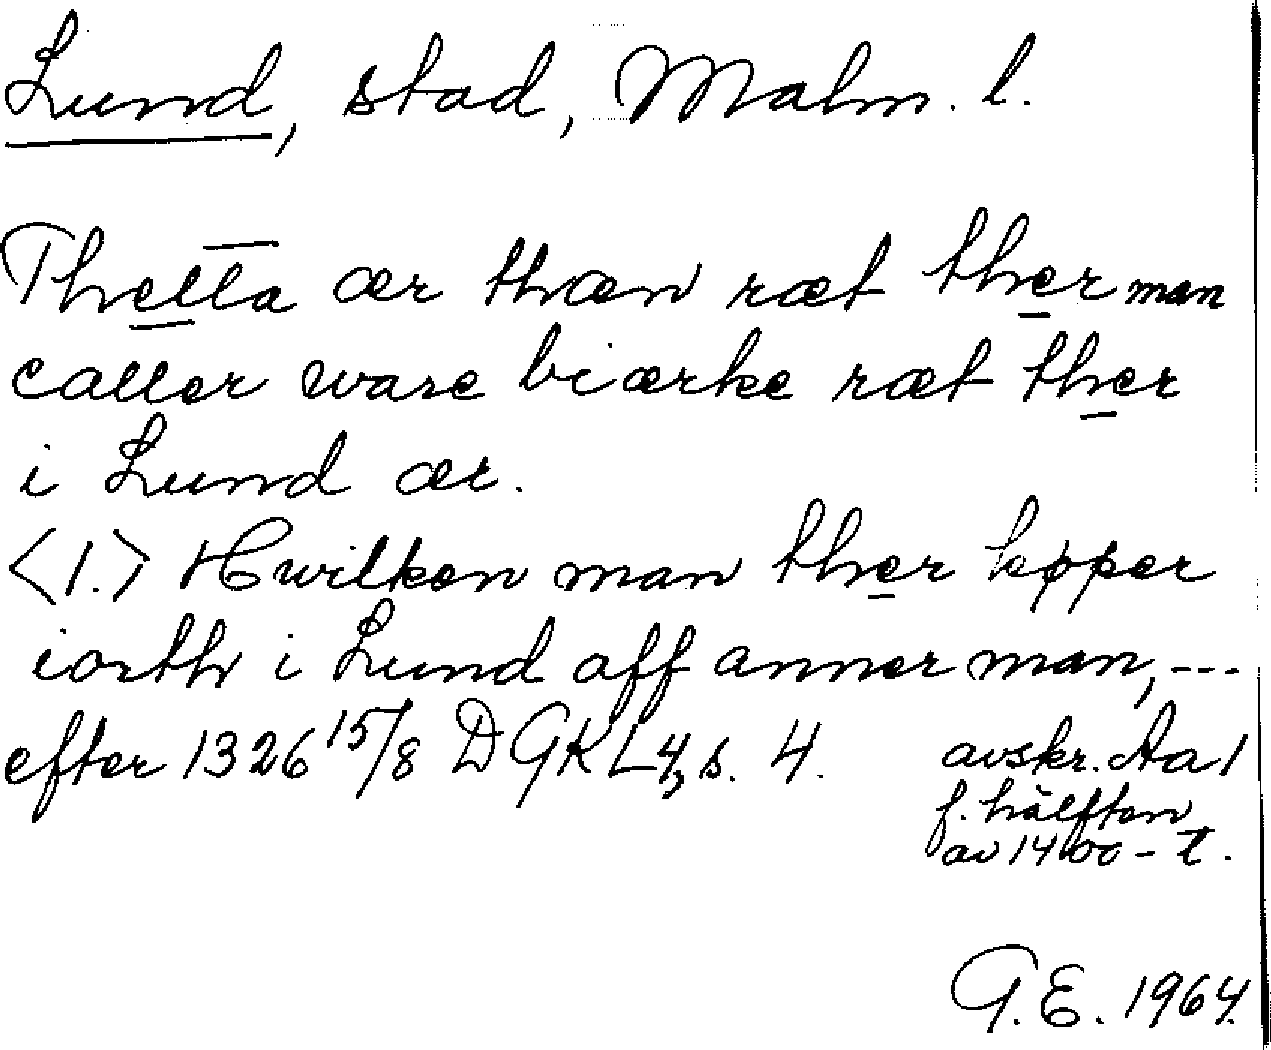 Lund, stad, Malm. l.
Thetta ær thæn ræt ther man
caller ware biærke ræt ther
i Lund ær.
<1.> Hwilken man ther køper
iorth i Lund aff anner man, ---
efter 1326 15/8 DGKL 4, s. 4. avskr. Aa 1
f. hälften
av 1400-t.
G.E. 1964.